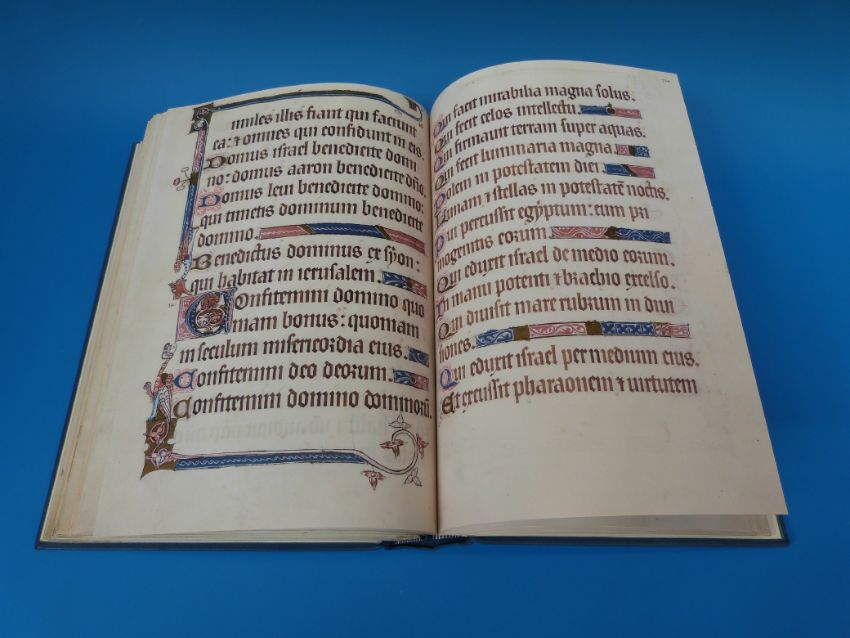 imiles illis fiant qui faciunt
ea: ⁊ omnes qui confidunt in eis.
Domus israel benedicite domi
no: domus aaron benedicite dño.
Domus leui benedicite domino:
qui timetis dominum benedicite
domino.
Benedictus dominus ex syon:
qui habitat in ierusalem.
Confitemini domino quo
niam bonus: quoniam
in seculum misericordia eius.
Confitemini deo deorum.
Confitemini domino dominorũ.
Qui facit mirabilia magna solus.
Qui fecit celos intellectu.
Qui firmauit terram super aquas.
Qui fecit luminaria magna.
Solem in potestatem diei.
Lunam ⁊ stellas in potestatẽ noctis.
Qui percussit egyptum: cum pri
mogenitis eorum.
Qui eduxit israel de medio eorum.
In manu potenti ⁊ brachio excelso.
Qui diuisit mare rubrum in diui
siones.
Qui eduxit israel per medium eius.
Et excussit pharaonem ⁊ uirtutem